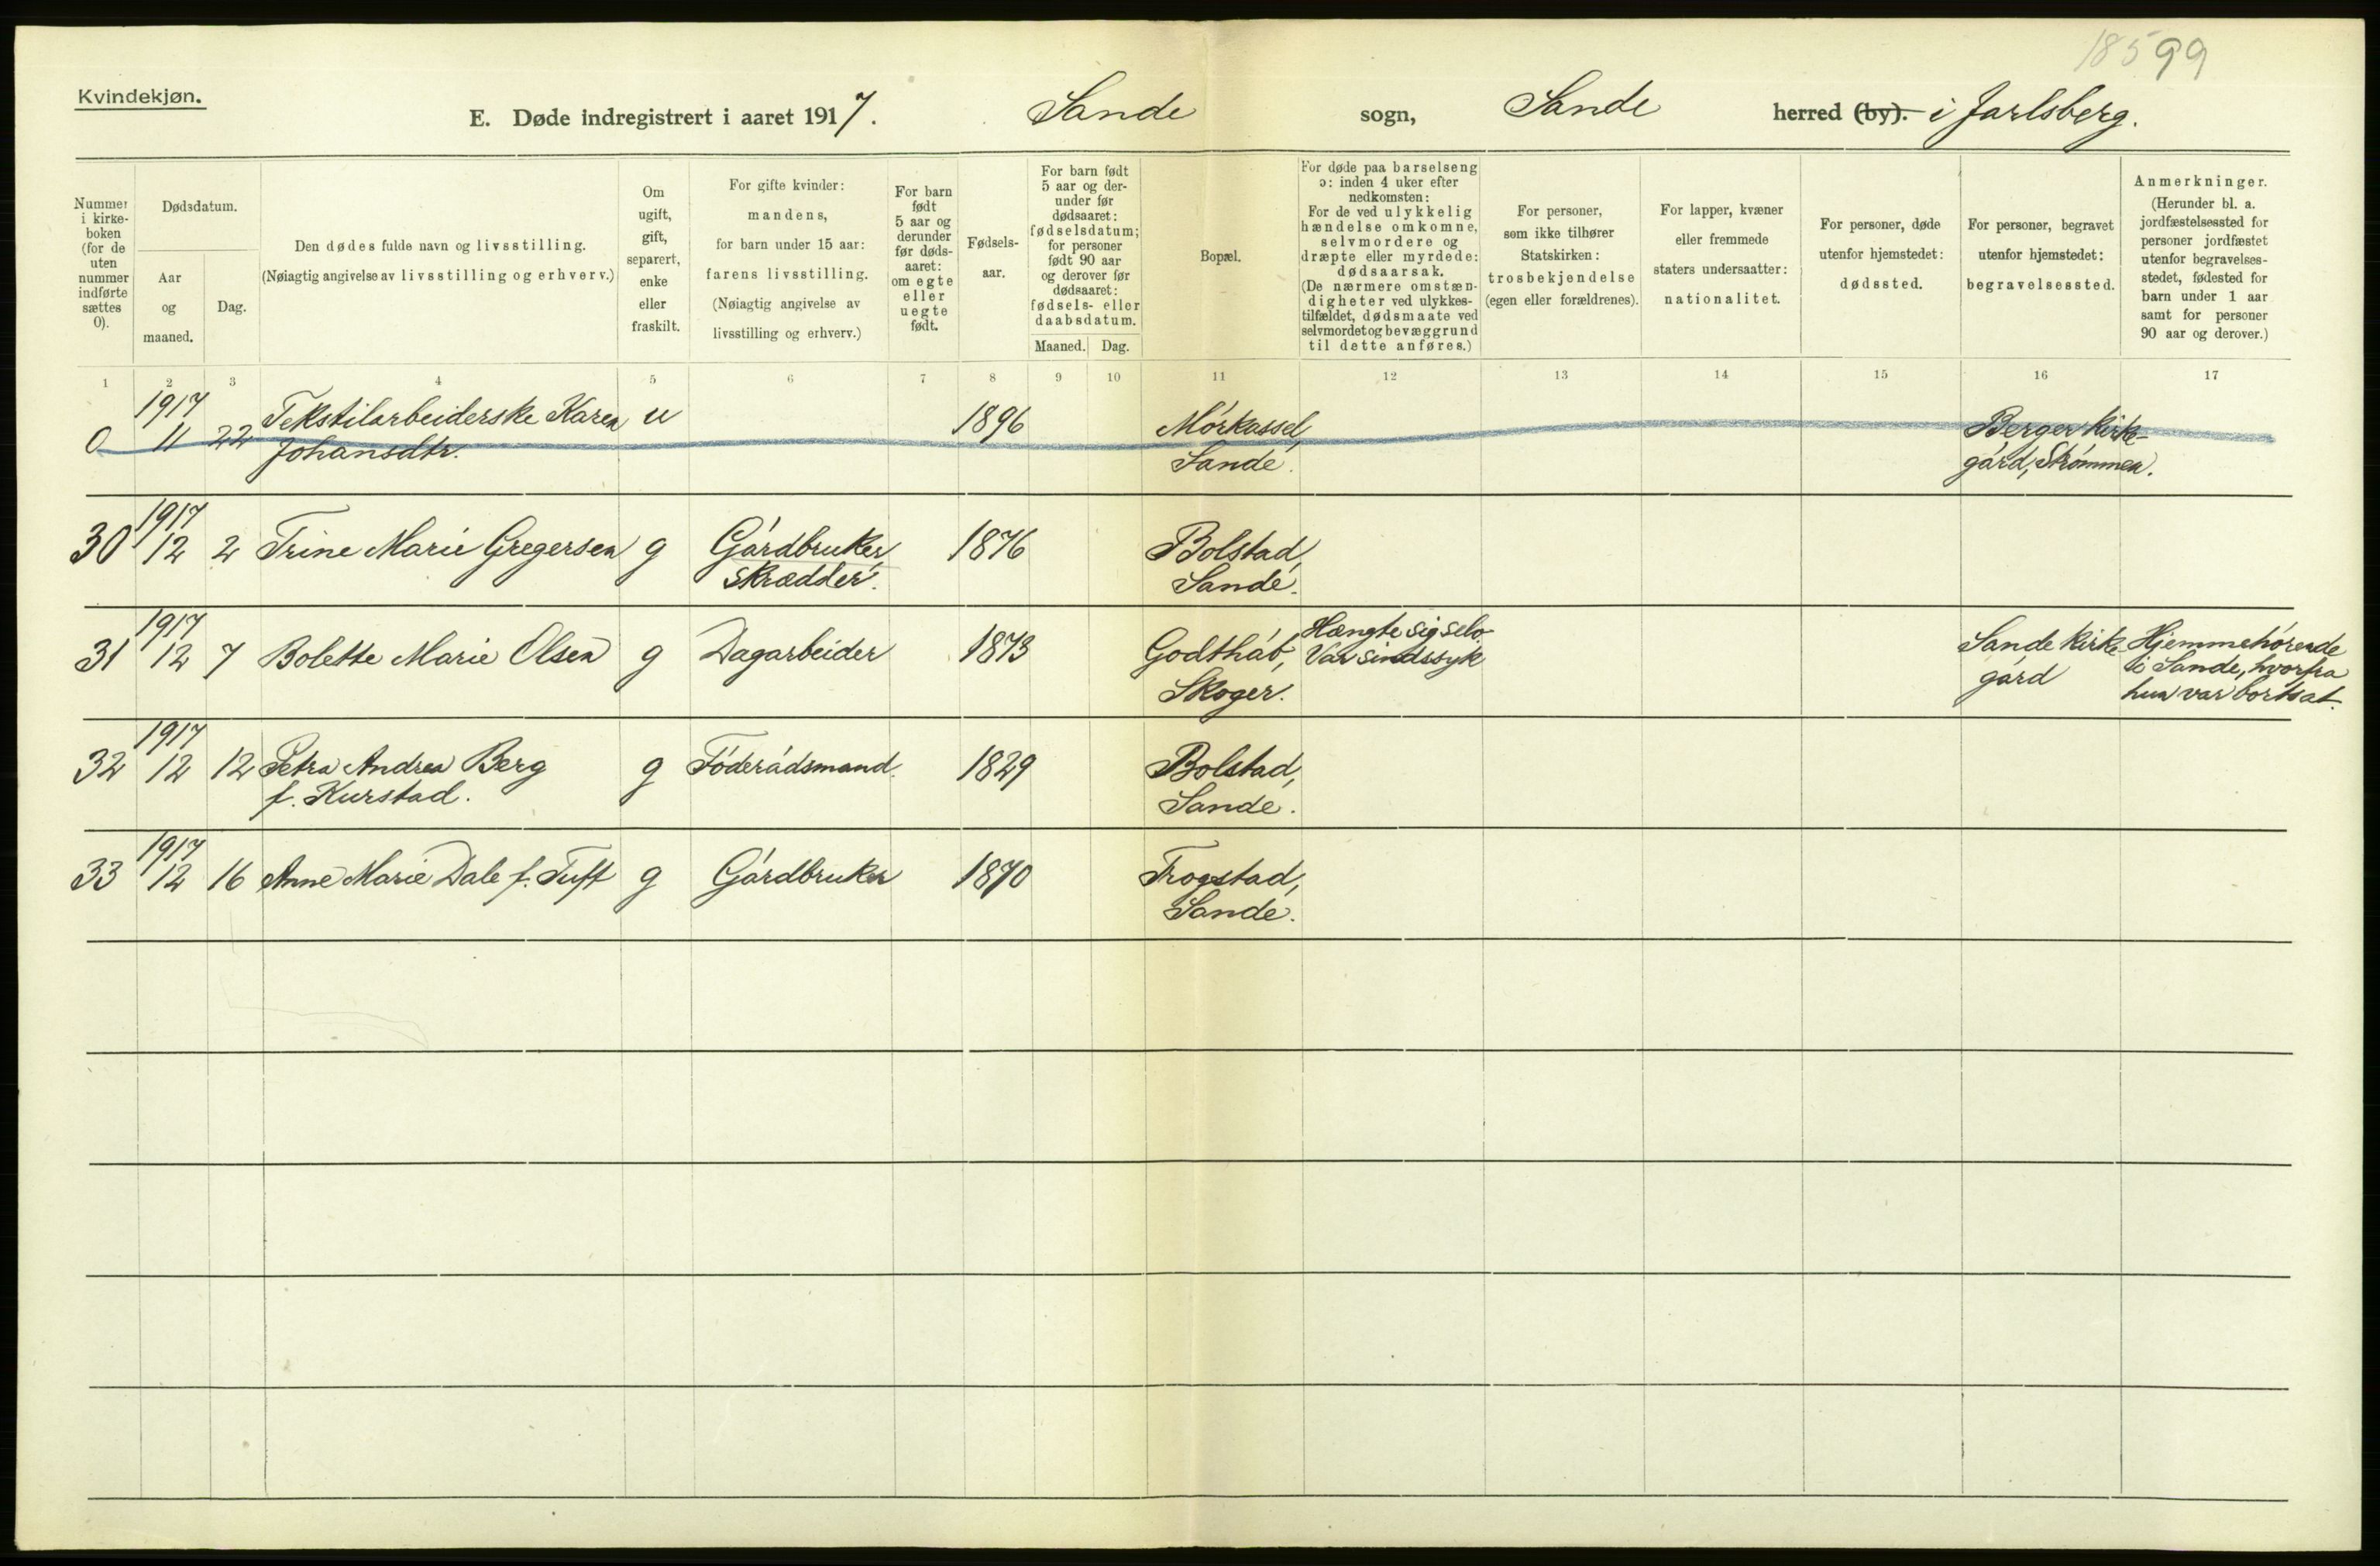 18599
Kvindekjøn.
E. Døde indregistrert i aaret 1917. Sande sogn, Sande herred (by). i Jarlsberg.
Nummer i kirke-boken (for de uten nummer indførte sættes 0).
Dødsdatum.
Aar og maaned.
Dag.
Den dødes fulde navn og livsstilling.
(Nøiagtig angivelse av livsstilling og erhverv.)
Om ugift, gift, separert, enke eller fraskilt.
For gifte kvinder: mandens, for barn under 15 aar: farens livsstilling. (Nøiagtig angivelse av livsstilling og erhverv.)
For barn født 5 aar og derunder før døds-aaret: om egte eller uegte født.
Fødsels-aar.
For barn født 5 aar og der-under før dødsaaret: fødselsdatum; for personer født 90 aar og derover før dødsaaret: fødsels- eller daabsdatum.
Maaned. Dag.
Bopæl.
For døde paa barselseng ɔ: inden 4 uker efter nedkomsten: For de ved ulykkelig hændelse omkomne, selvmordere og dræpte eller myrdede: dødsaarsak. (De nærmere omstæn-digheter ved ulykkes-tilfældet, dødsmaate ved selvmordet og bevæggrund til dette anføres.)
For personer, som ikke tilhører Statskirken: trosbekjendelse (egen eller forældrenes).
For lapper, kvæner eller fremmede staters undersaatter: nationalitet.
For personer, døde utenfor hjemstedet: dødssted.
For personer, begravet utenfor hjemstedet: begravelsessted.
Anmerkninger. (Herunder bl. a. jordfæstelsessted for personer jordfæstet utenfor begravelses-stedet, fødested for barn under 1 aar samt for personer 90 aar og derover.)
1 2 3 4 5 6 7 8 9 10 11 12 13 14 15 16 17
1917
0 11 22 Tekstilarbeiderske Karen u 1896 Mórkassel, Berger kirk-
Johansdtr. Sande. gård, Strómmen.
1917
30 12 2 Trine Marie Gregersen g Gårdbruker, 1876 Bolstad,
skrædder. Sande.
1917 Hængte sig selv.
31 12 7 Bolette Marie Olsen g Dagarbeider 1873 Godtháb, Var sindssyk Sande kirke- Hjemmehórende
Skoger. gård ti Sande, hvorfra
hun var bortsat.
1917
32 12 12 Petra Andrea Berg g Fóderådsmand. 1829 Bolstad,
f. Kurstad. Sande.
1917
33 12 16 Anne Marie Dale f. Tuft g Gårdbruker 1870 Trogstad,
Sande.